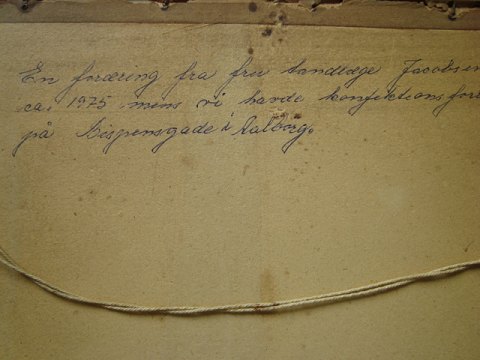 En foræring fra fru tandlæge Jacobsen
ca. 1975 mens vi havde konfektions forre
på Bispensgade i Aalborg.